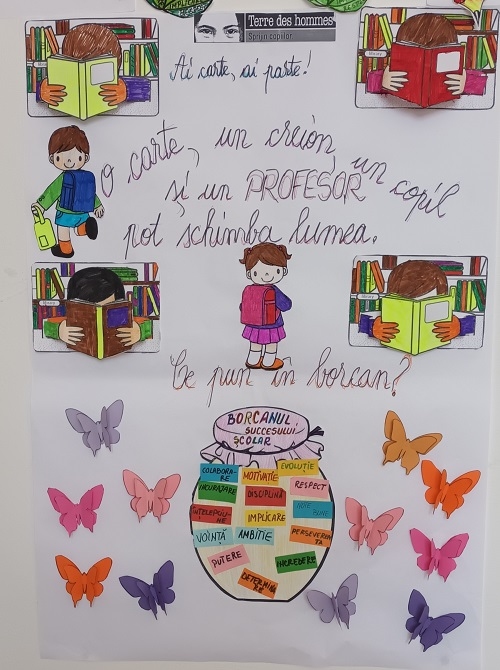 Terre des hommes
Sprijin copiilor
Ai carte, ai parte!
O carte, un creion, un copil
și un PROFESOR
pot schimba lumea.
Ce pun în borcan?
BORCANUL
SUCCESULUI
ȘCOLAR
COLABORA-
RE
MOTIVAȚIE
EVOLUȚIE
ÎNCURAJARE
DISCIPLINĂ
RESPECT
ÎNȚELEPCIU-
NE
IMPLICARE
VOINȚĂ
AMBIȚIE
PERSEVEREN
ȚĂ
PUTERE
ÎNCREDERE
DETERMINA
RE